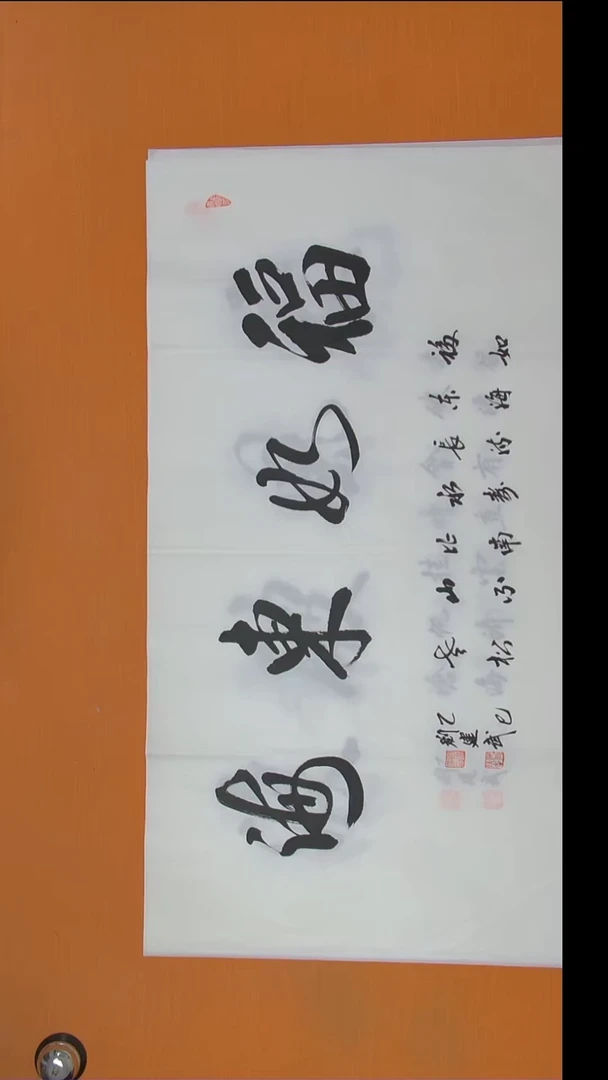 福如東海
福如
东海
长流
水寿
比南
山不
老松
乙巳
刘建武